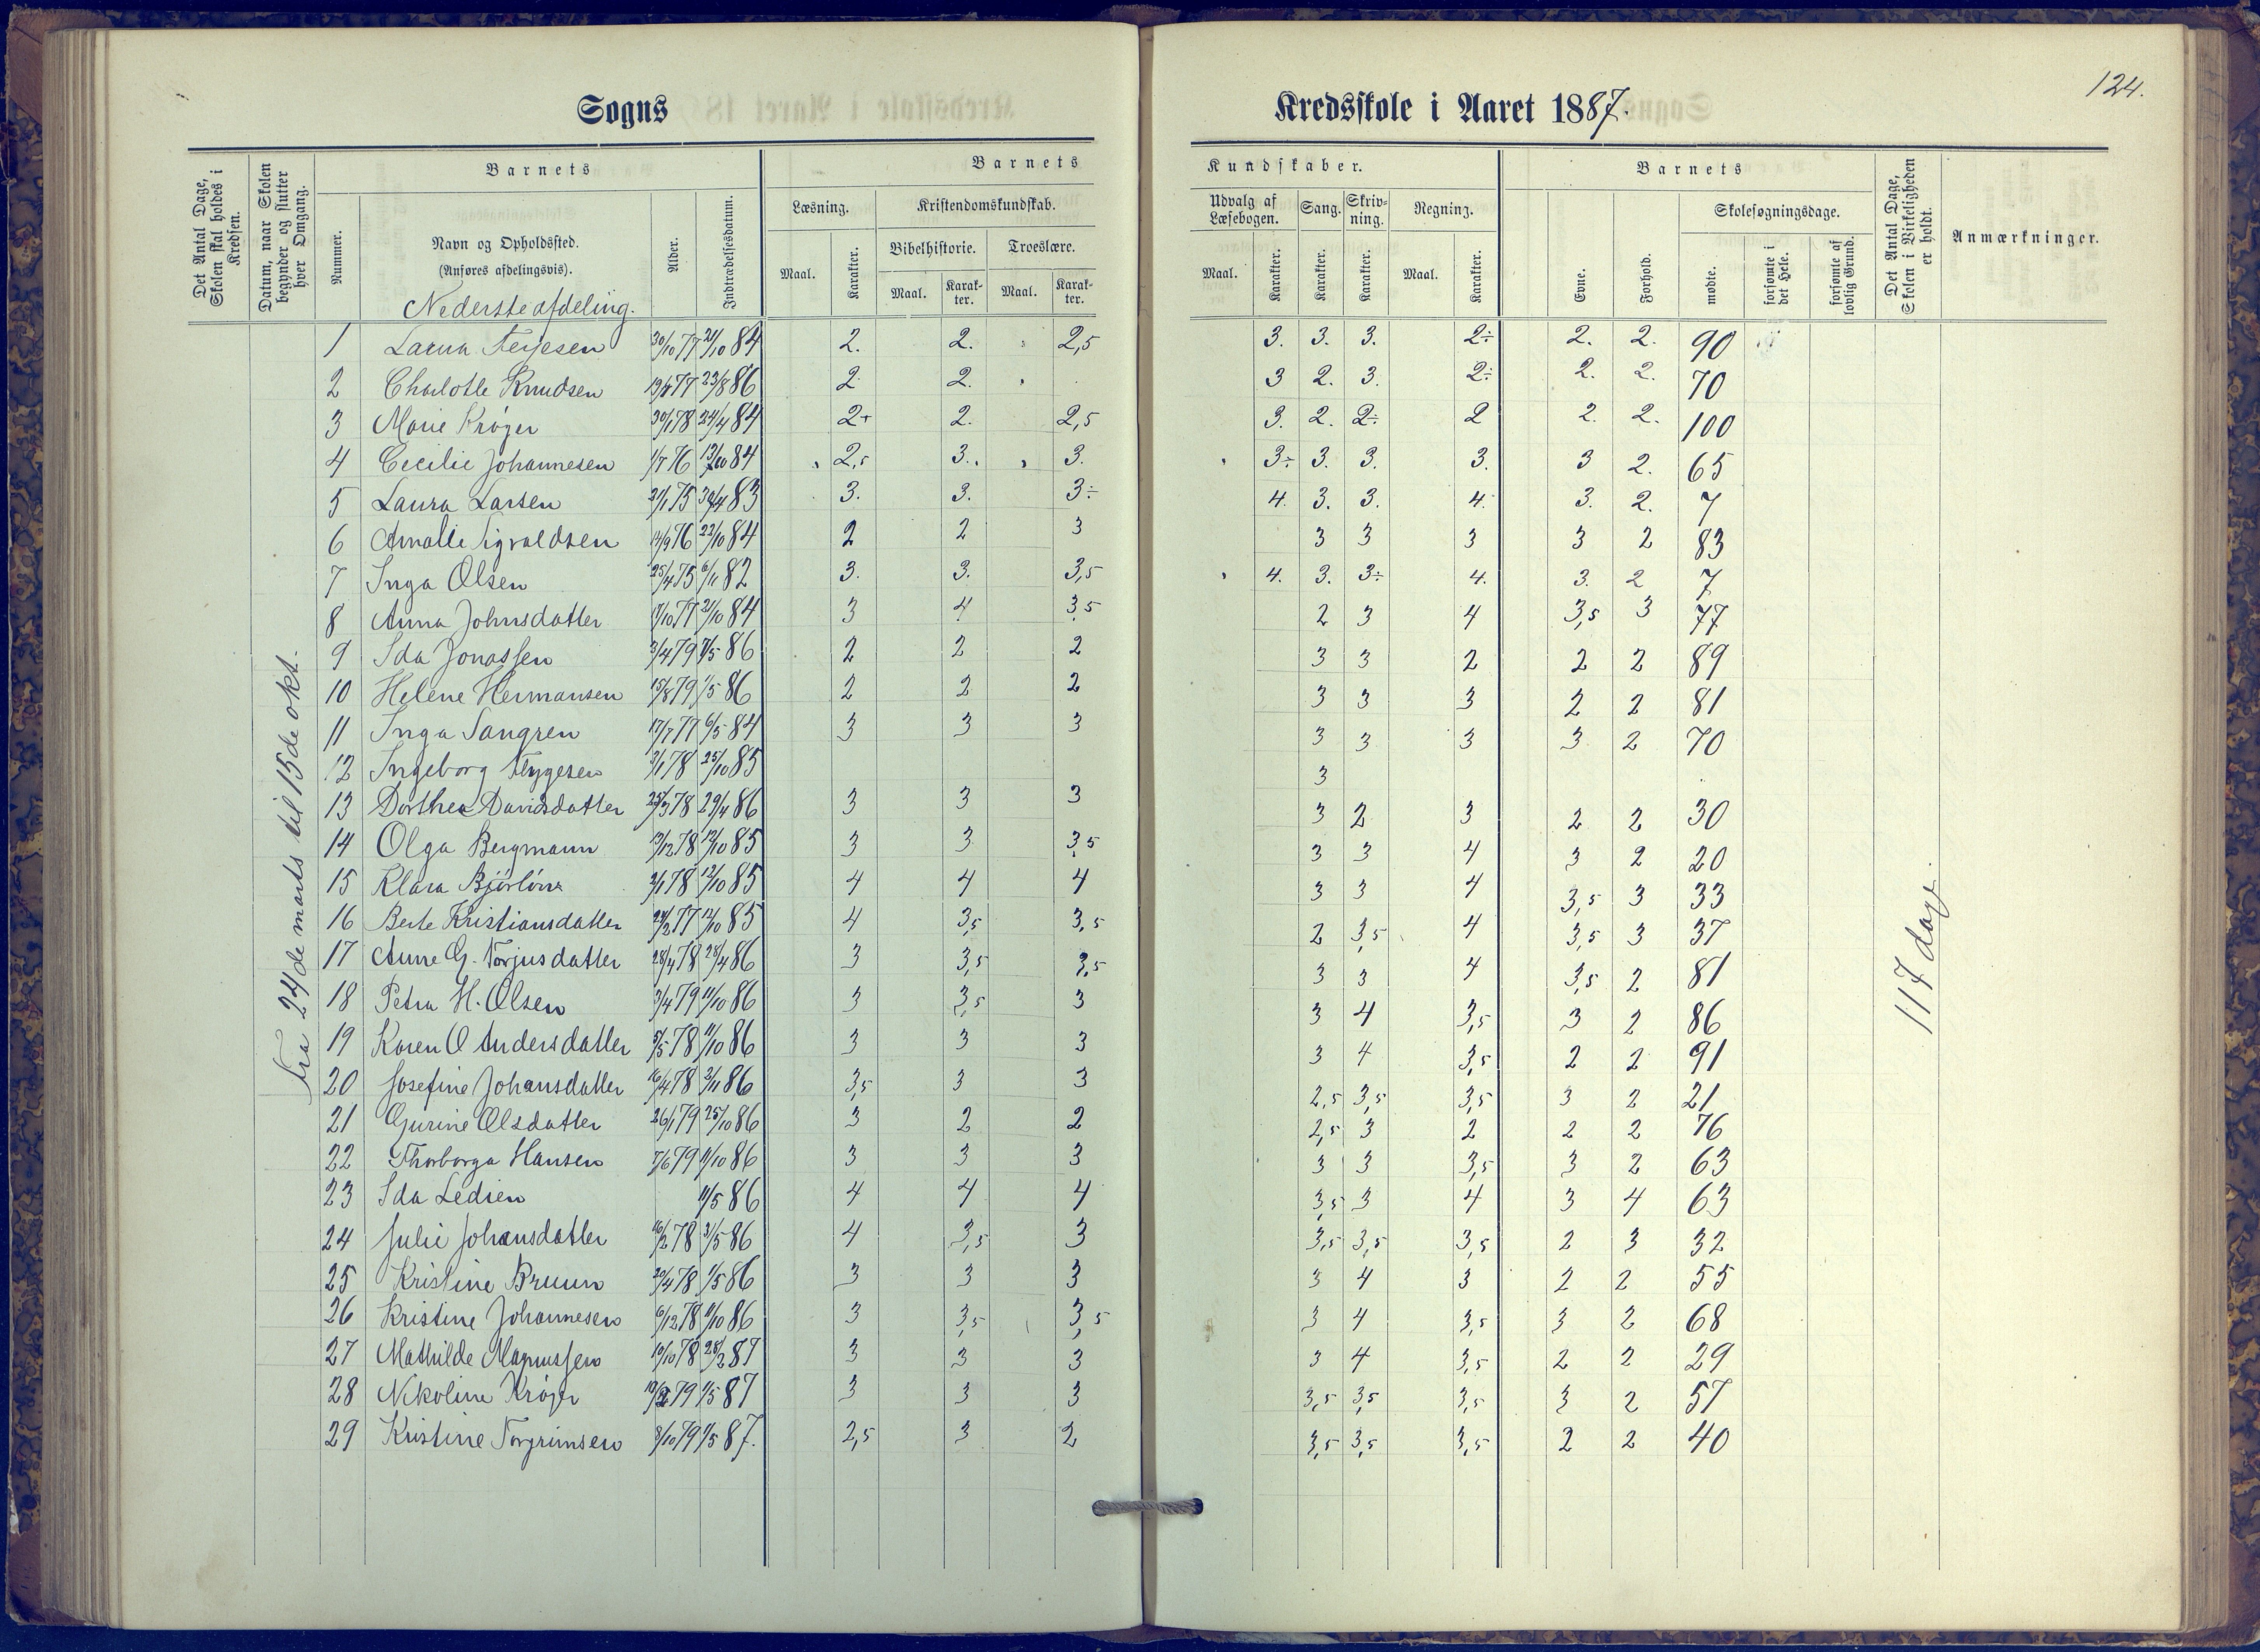 124.
Sogns Kredsskole i Aaret 1887.
Det Antal Dage, Skolen skal holdes i Kredsen.
Datum, naar Skolen begynder og slutter hver Omgang.
Barnets
Nummer.
Navn og Opholdssted.
(Anføres afdelingsvis).
Nederste afdeling.
Alder.
Indtrædelsesdatum.
Barnets Kundskaber.
Læsning.
Maal. Karakter.
Kristendomskundskab.
Bibelhistorie. Troeslære.
Maal. Karakter. Maal. Karakter.
Udvalg af Læsebogen.
Maal. Karakter.
Sang.
Karakter.
Skrivning.
Karakter.
Regning.
Maal. Karakter.
Barnets
Evne. Forhold.
Skolesøgningsdage.
mødte. forsømte i det Hele. forsømte af lovlig Grund.
Det Antal Dage, Skolen i Virkeligheden er holdt.
Anmærkninger.
Fra 24de marts til 15de okt.
117 dage
1 Laura Terjesen 30/10 77 21/10 84 2. 2. 2,5 3. 3. 3. 2÷ 2. 2. 90
2 Charlotte Knudsen 77 23/8 86 2 2. 3 2. 3. 2÷ 2. 2. 70
3 Marie Krøger 30/1 78 24/4 84 2+ 2. 2,5 3. 2. 2÷ 2 2. 2. 100
4 Cecilie Johannesen 1/7 76 84 2,5 3. 3. 3÷ 3. 3. 3. 3 2. 65
5 Laura Larsen 75 30/4 83 3. 3. 3÷ 4. 3. 3. 4. 3. 2. 7
6 Amalie Sigvaldsen 14/9 76 22/10 84 2 2 3 3 3 3 3 2 83
7 Inga Olsen 25/4 75 6/11 82 3. 3. 3,5 4. 3. 3÷ 4. 3. 2 7
8 Anna Johnsdatter 77 21/10 84 3 4 3,5 2 3 4 3,5 3 77
9 Ida Jonassen 3/4 79 86 2 2 2 3 3 2 2 2 89
10 Helene Hermansen 15/8 79 1/5 86 2 2 2 3 3 3 2 2 81
11 Inga Sangren 17/7 77 6/5 84 3 3 3 3 3 3 3 2 70
12 Ingeborg 78 25/10 85 3
13 Dorthea Davidsdatter 25/3 78 29/4 86 3 3 3 3 2 3 2 2 30
14 Olga Bergmann 13/12 78 12/10 85 3 3 3,5 3 3 4 3 2 20
15 Klara 2/1 78 12/10 85 4 4 4 3 3 4 3,5 3 33
16 Berte Kristiansdatter 77 12/10 85 4 3,5 3,5 2 3,5 4 3,5 3 37
17 Anne G. Torjusdatter 28/4 78 28/4 86 3 3,5 3,5 3 3 4 3,5 2 81
18 Petra H. Olsen 3/4 79 11/10 86 3 3,5 3 3 4 3,5 3 2 86
19 Karen O Andersdatter 5/5 78 11/10 86 3 3 3 3 4 3,5 2 2 91
20 Josefine Johansdatter 16/4 78 2/11 86 3,5 3 3 2,5 3,5 3,5 3 2 21
21 Gurine Olsdatter 26/1 79 25/10 86 3 2 2 2,5 3 2 2 2 76
22 Thorborga Hansen 7/6 79 11/10 86 3 3 3 3 3 3,5 3 2 63
23 Ida Ledsen 11/5 86 4 4 4 3,5 3 4 3 4 63
24 Julie Johansdatter 16/2 78 31/5 86 4 3,5 3 3,5 3,5 3,5 2 3 32
25 Kristine Bruun 20/4 78 1/5 86 3 3 3 3 4 3 2 2 55
26 Kristine Johannesen 6/12 78 11/10 86 3 3,5 3,5 3 4 3,5 3 2 68
27 Mathilde Magnussen 10/10 78 28/2 87 3 3 3 3 4 3,5 2 2 29
28 Nikoline Krøger 79 1/5 87 3 3 3 3,5 3,5 3,5 3 2 57
29 Kristine Torgrimsen 8/10 79 1/5 87. 2,5 3 2 3,5 3,5 3,5 2 2 40